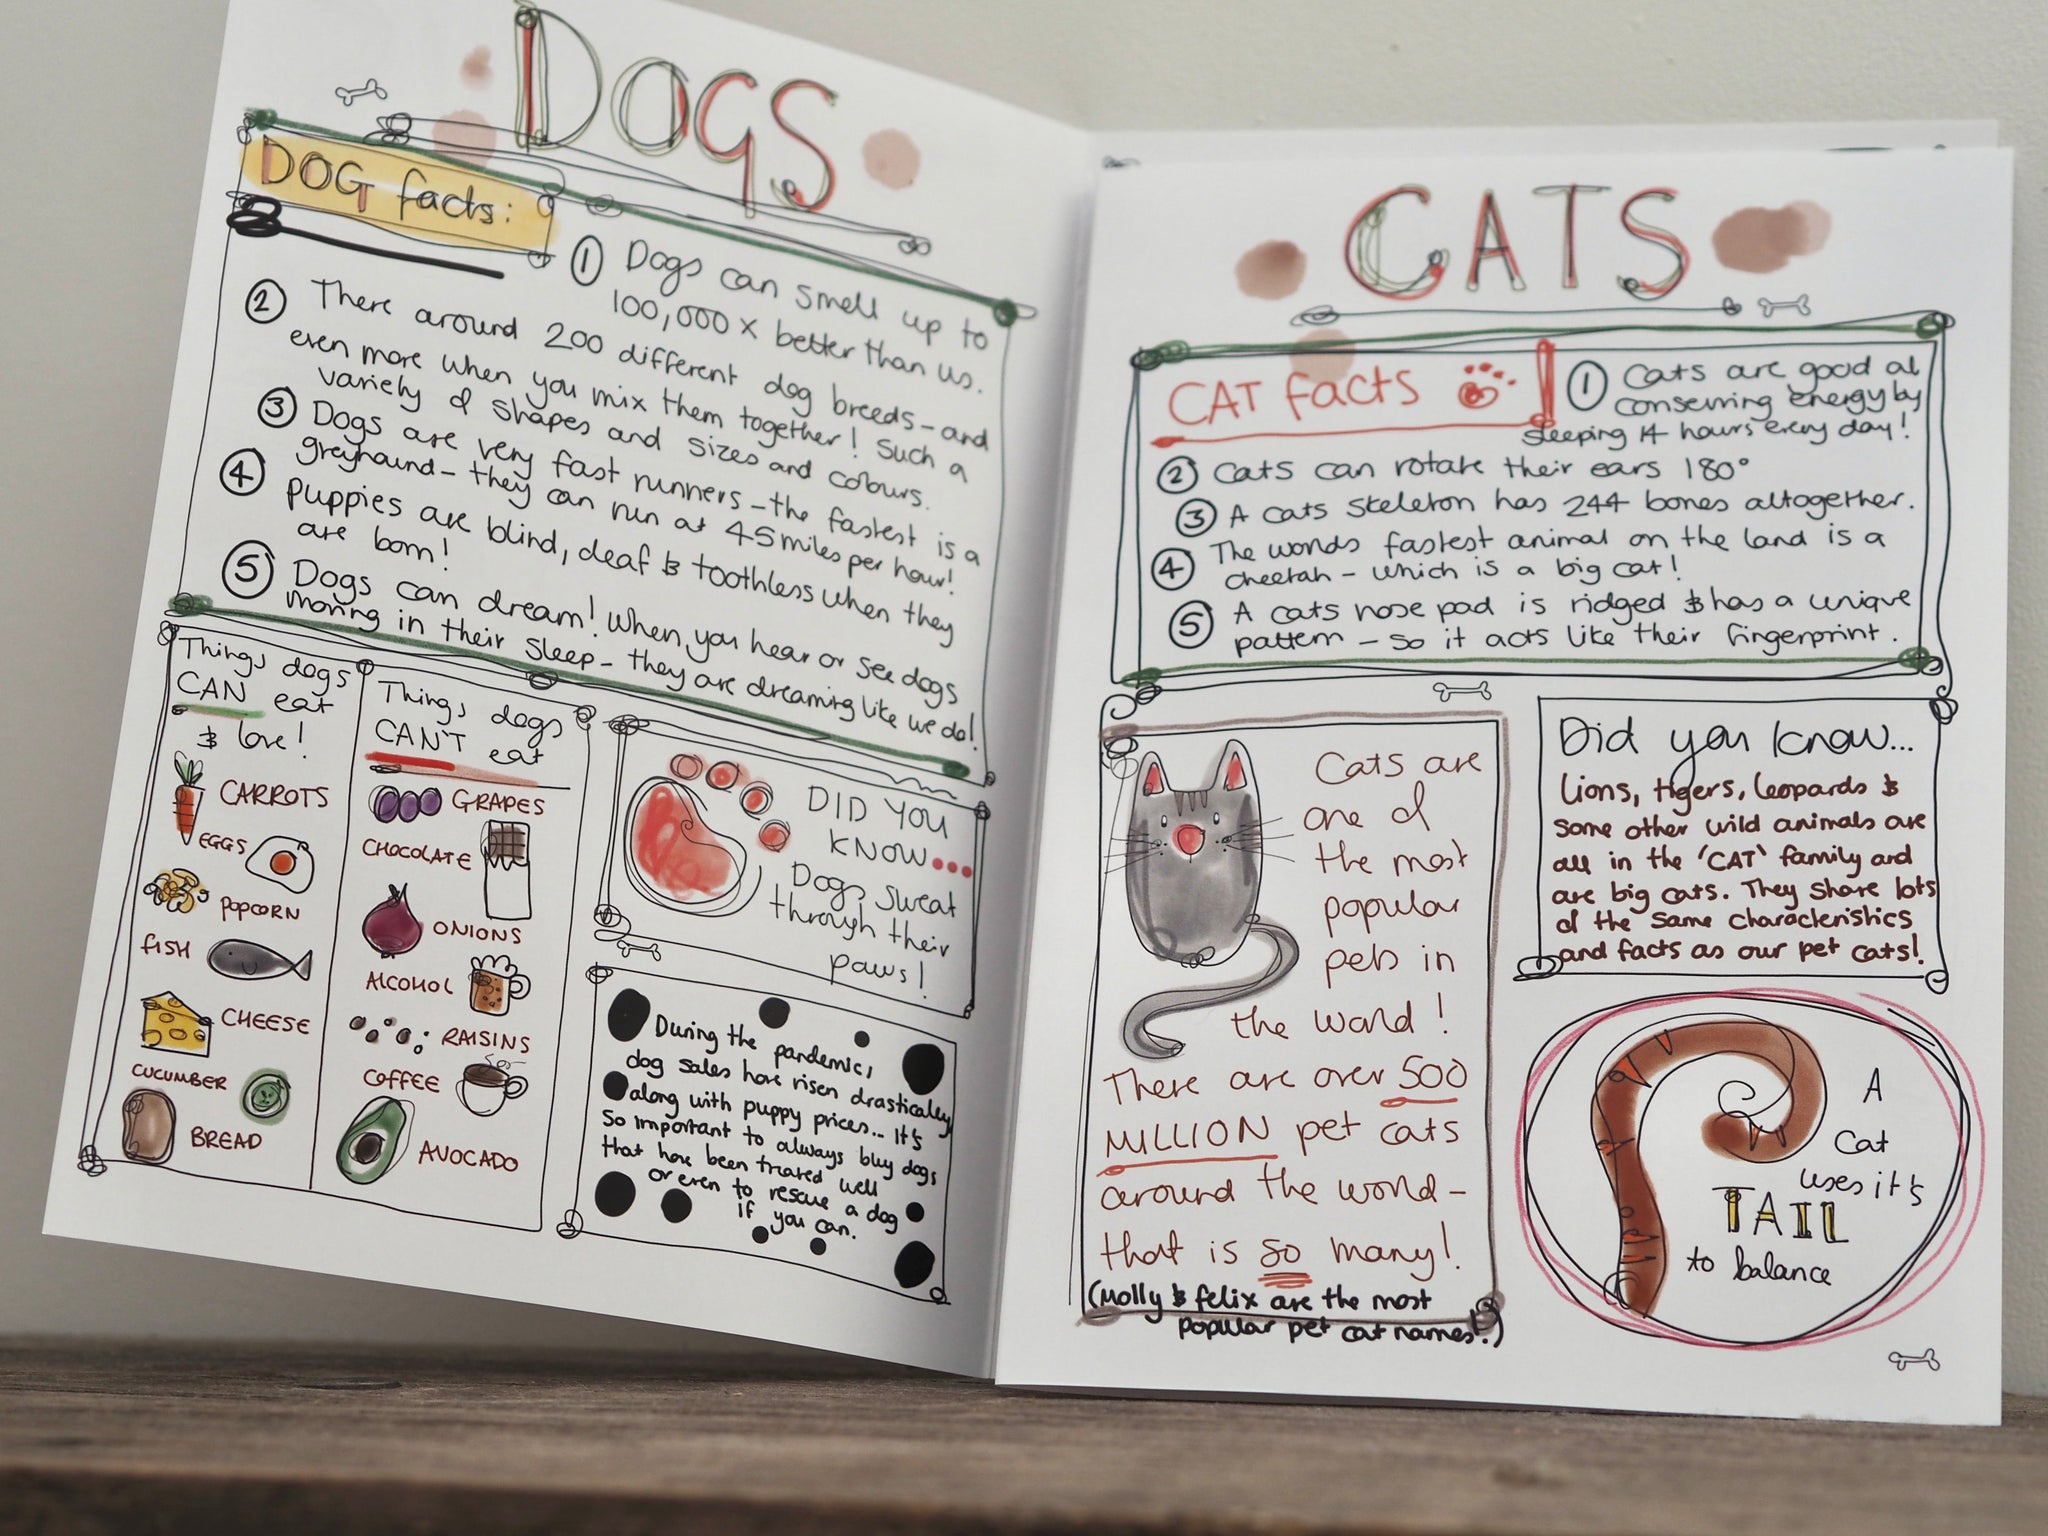 DOGS
DOG facts:
① Dogs can smell up to
100,000 x better than us.
② There around 200 different dog breeds – and
even more when you mix them together! Such a
variety of shapes and sizes and colours.
③ Dogs are very fast runners – the fastest is a
greyhound – they can run at 45 miles per hour!
④ Puppies are blind, deaf & toothless when they
are born!
⑤ Dogs can dream! When you hear or see dogs
moving in their sleep – they are dreaming like we do!
Things dogs
CAN eat
& love!
CARROTS
EGGS
POPCORN
FISH
CHEESE
CUCUMBER
BREAD
Things dogs
CAN'T eat
GRAPES
CHOCOLATE
ONIONS
ALCOHOL
RAISINS
COFFEE
AVOCADO
DID YOU
KNOW...
Dogs sweat
through their
paws!
During the pandemic,
dog sales have risen drastically
along with puppy prices... It's
so important to always buy dogs
that have been treated well
or even to rescue a dog
if you can.
CATS
CAT facts
① Cats are good at
conserving energy by
sleeping 14 hours every day!
② Cats can rotate their ears 180°
③ A cats skeleton has 244 bones altogether.
④ The worlds fastest animal on the land is a
cheetah – which is a big cat!
⑤ A cats nose pad is ridged & has a unique
pattern – so it acts like their fingerprint.
Cats are
one of
the most
popular
pets in
the world!
There are over 500
MILLION pet cats
around the world –
that is so many!
(Molly & felix are the most
popular pet cat names!)
Did you know...
Lions, tigers, leopards &
some other wild animals are
all in the 'CAT' family and
are big cats. They share lots
of the same characteristics
and facts as our pet cats!
A
Cat
uses it's
TAIL
to balance